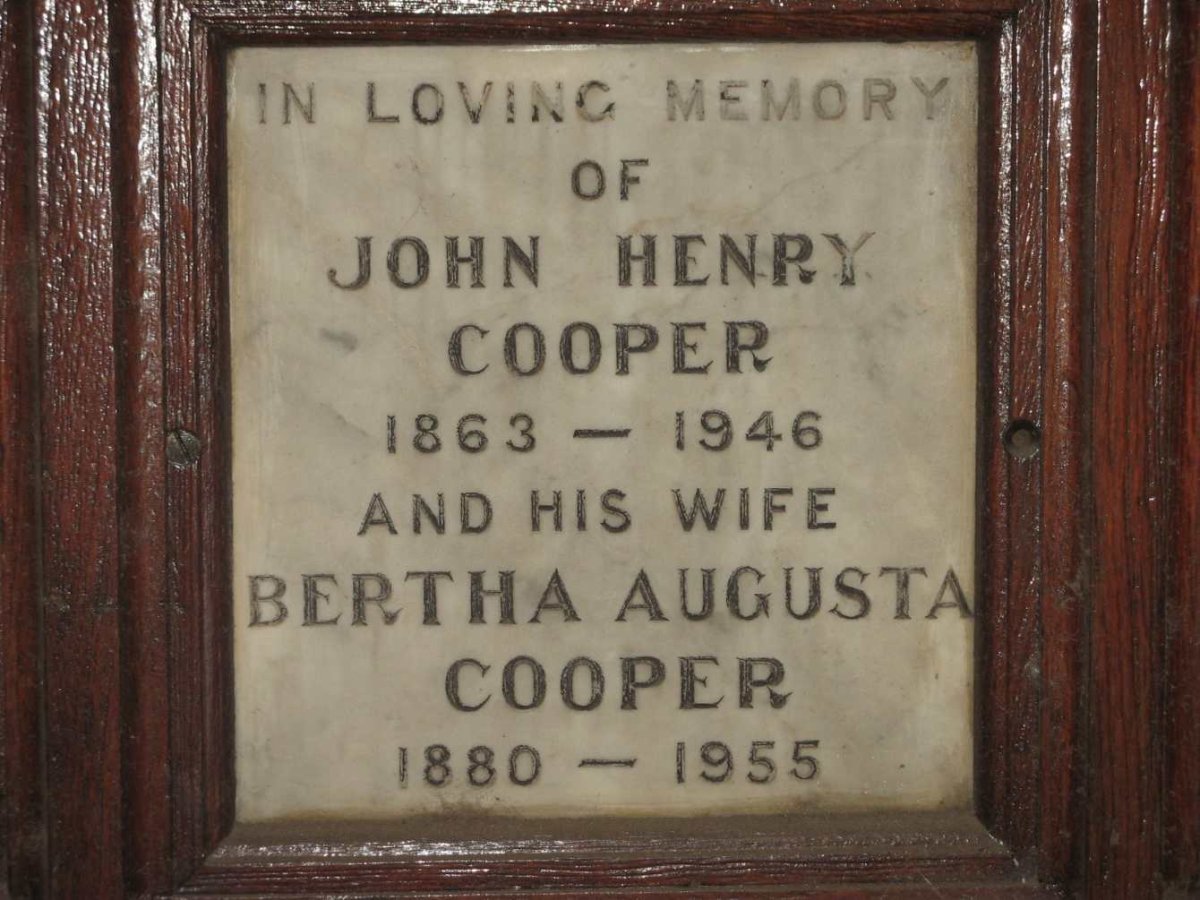 IN LOVING MEMORY
OF
JOHN HENRY
COOPER
1863 — 1946
AND HIS WIFE
BERTHA AUGUSTA
COOPER
1880 — 1955